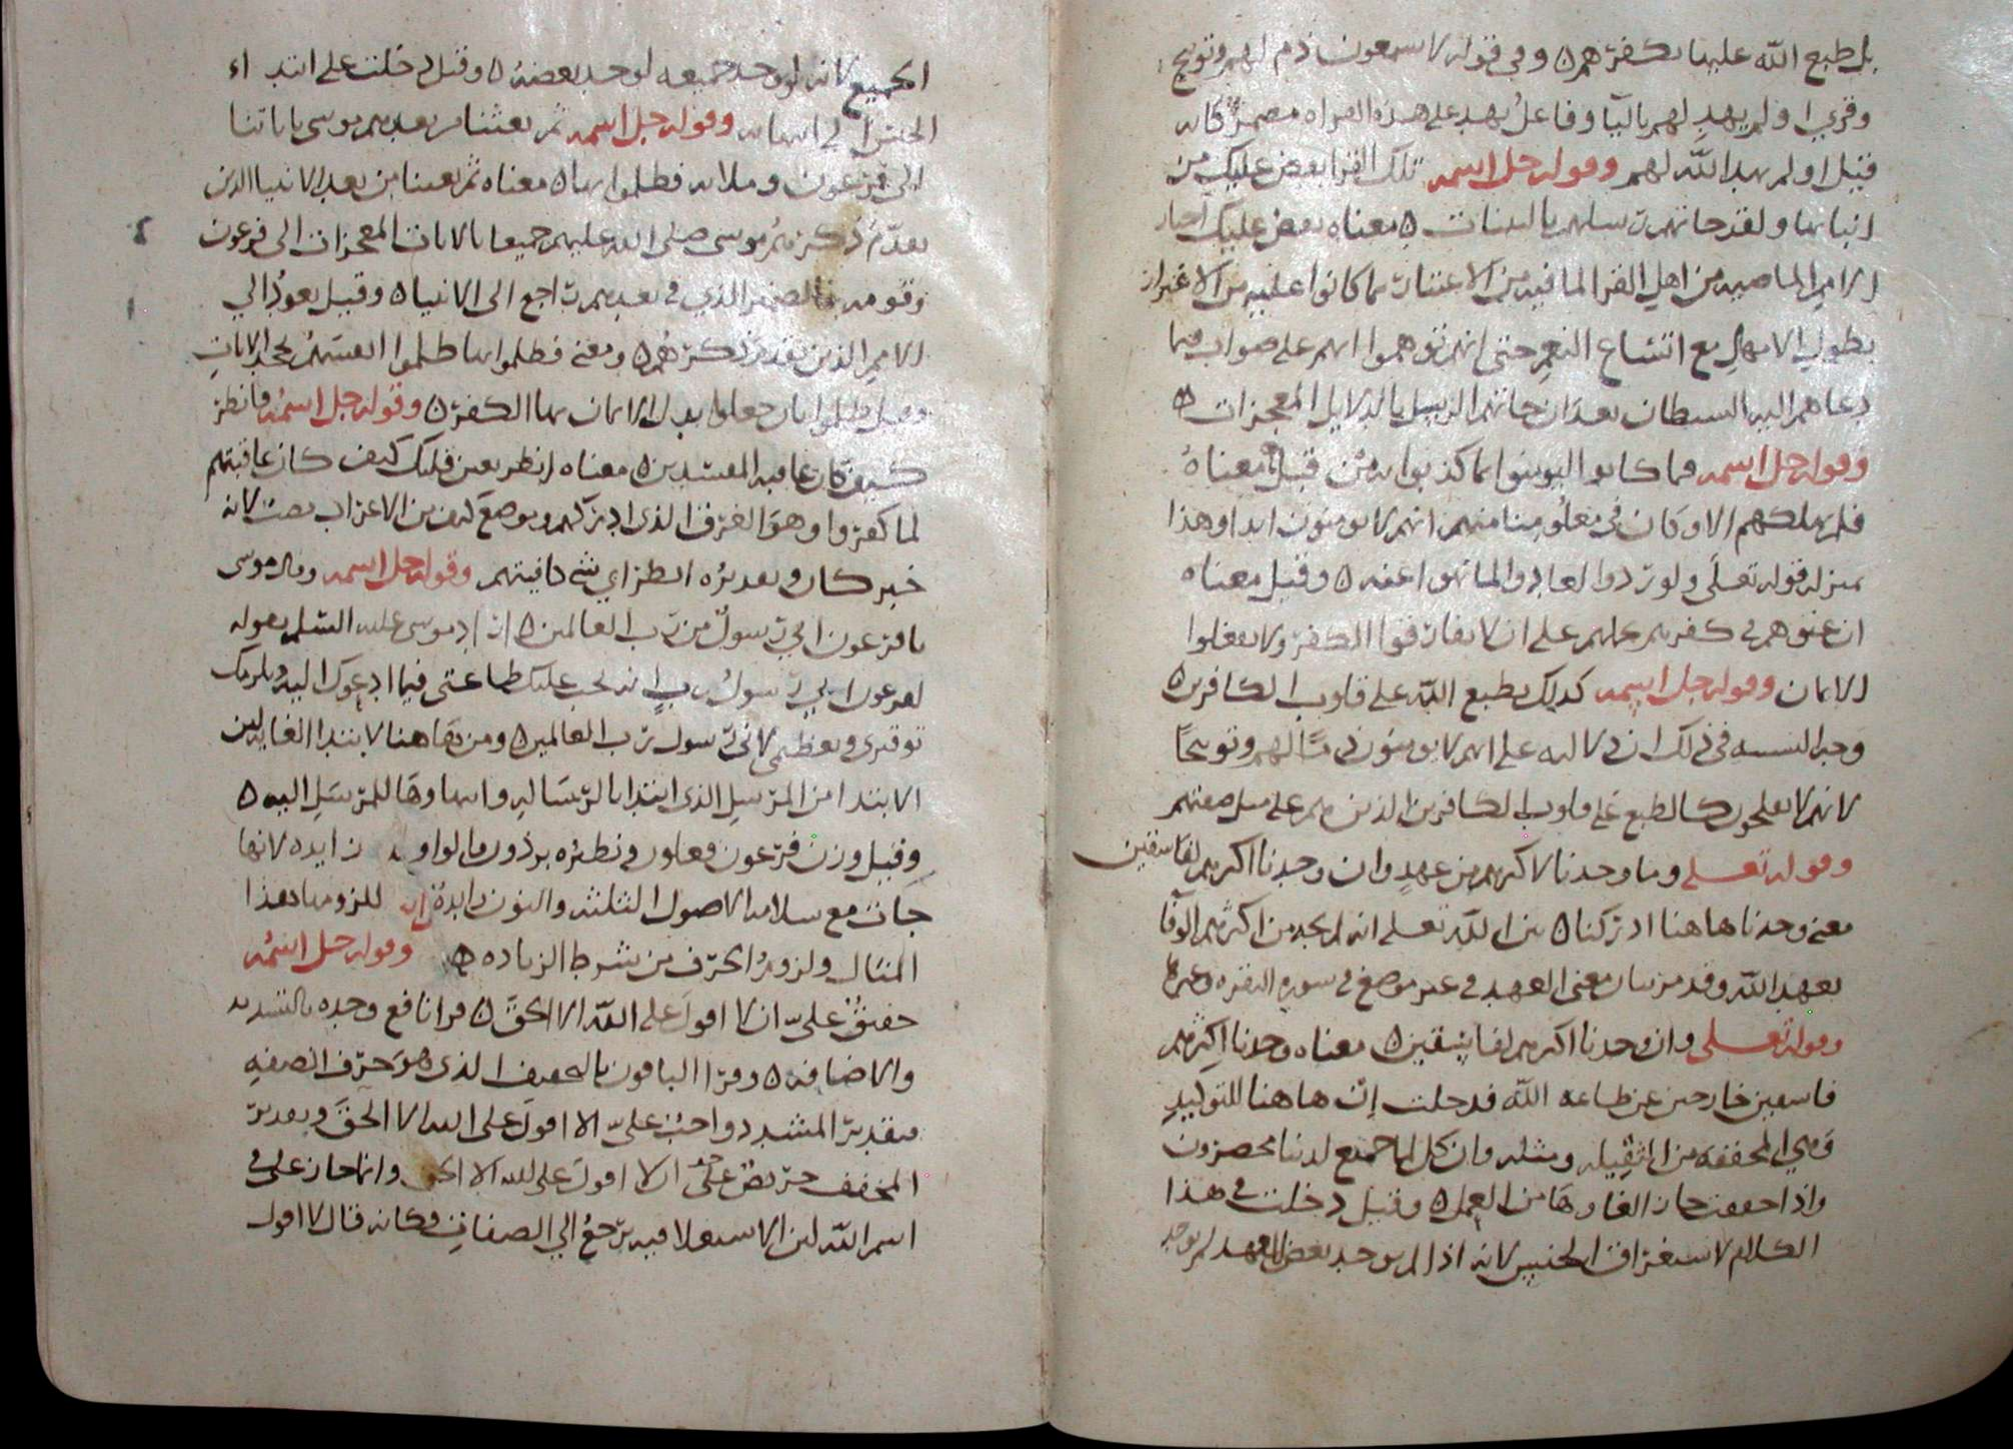 بل طبع الله عليها بكفرهم ۵ وفي قوله لا يسمعون ذم لهم وتوبيخ
وقري اولم يهد لهم باليا وفاعل يهد على هذه القراه مضمر كانه
قيل اولم يهد الله لهم وقوله جل اسمه تلك القرا نقص عليك من
انبائها ولقد جاتهم رسلهم بالبينات ۵ معناه نقص عليك اخبار
الامم الماضيه من اهل القرا لما فيه من الاعتبار بما كانوا عليه من الاغترار
بطول الامهال مع اتساع النعم حتى انهم توهموا انهم على صواب فيما
دعاهم اليه الشيطان بعد ان جاتهم الرسل بالدلايل المعجزات ۵
وقوله جل اسمه فما كانوا ليومنوا بما كذبوا به من قبل معناه
فلم نهلكهم الا وكان في معلومنا منهم انهم لا يومنون ابدا وهذا
بمنزلة قوله تعلى ولو ردوا لعادوا لما نهوا عنه ۵ وقيل معناه
ان عتوهم في كفرهم يحملهم على ان لا يفارقوا الكفر ولا يفعلوا
الايمان وقوله جل اسمه كذلك يطبع الله على قلوب الكافرين ۵
وجه التشبيه في ذلك ان دلاله على انهم لا يومنون ذما لهم وتوبيخا
لانهم لا يفلحون كالطبع على قلوب الكافرين الذين هم على مثل صفتهم
وقوله تعلى وما وجدنا لاكثرهم من عهد وان وجدنا اكثرهم لفاسقين
معنى وجدنا هاهنا ادركنا ۵ بين الله تعلى انه لم يجد من اكثرهم الوفا
بعهد الله وقد مر بيان معنى العهد في غير موضع في سورة البقره وغيرها
وقوله تعلى وان وجدنا اكثرهم لفاسقين ۵ معناه وجدنا اكثرهم
فاسقين خارجين عن طاعه الله قد دخلت ان هاهنا للتوكيد
وهي المخففه من الثقيله ومثله وان كل لما جميع لدينا محضرون
واذا خففت جاز الغاوها من العمل ۵ وقيل دخلت في هذا
الكلام لاستغراق الجنس لانه اذا لم يوجد بعض العهد لم يوجد
الجميع لانه لو وجد جميعه لوجد بعضه ۵ وقيل دخلت على ابتداء
الجنس الى انتهايه وقوله جل اسمه ثم بعثنا من بعدهم موسى باياتنا
الى فرعون وملايه فظلموا بها ۵ معناه ثم بعثنا من بعد الانبيا الذين
تقدم ذكرهم موسى صلى الله عليهم جميعا بالايات المعجزات الى فرعون
وقومه فالضمير الذي في بعدهم راجع الى الانبيا ۵ وقيل يعود الى
الامم الذين تقدم ذكرهم ۵ ومعنى فظلموا بها ظلموا انفسهم بجحد الايات
وقيل ظلموا بان جعلوا بدل الايمان بها الكفر ۵ وقوله جل اسمه فانظر
كيف كان عاقبه المفسدين ۵ معناه انظر بعين قلبك كيف كان عاقبتهم
لما كفروا وهو الغرق الذي ادركهم وموضع كيف من الاعراب نصب لانه
خبر كان وتقديره انظر اي شي عاقبتهم وقوله جل اسمه وقال موسى
يا فرعون اني رسول من رب العالمين ۵ اراد موسى عليه السلم بقوله
لفرعون اني رسول رب انه يجب عليك طاعتي فيما ادعوك اليه ويلزمك
توقيري وتعظيمي لاني رسول رب العالمين ۵ ومن هاهنا لابتدا الغايه لان
الابتدا من المرسل الذي ابتدا بالرساله وانتهاوها للمرسل اليه ۵
وقيل وزن فرعون فعلول ونظيره برذون والواو زايده لانها
جات مع سلامه الاصول الثلثه والنون زايده للزومها هذا
المثال ولزوم الحرف من شرط الزياده ۵ وقوله جل اسمه
حقيق علي ان لا اقول على الله الا الحق ۵ قرا نافع وحده بالتشديد
والاضافه ۵ وقرا الباقون بالتخفيف الذي هو حرف الصفه
فتقدير المشدد واجب علي الا اقول على الله الا الحق وتقدير
المخفف حريص على ان لا اقول على الله الا الحق وانما جاز على في
اسم الله لان الاستعلا فيه يرجع الى الصفات فكانه قال لا اقول